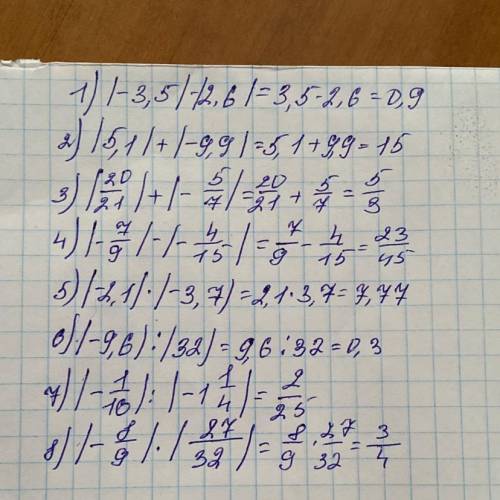 1) |-3,5|-|2,6|=3,5-2,6=0,9
2) |5,1|+|-9,9|=5,1+9,9=15
3) |20/21|+|-5/7|=20/21+5/7=5/3
4) |-7/9|-|-4/15|=7/9-4/15=23/45
5) |-2,1|·|-3,7|=2,1·3,7=7,77
6) |-9,6|:|32|=9,6:32=0,3
7) |-1/10|:|-1 1/4|=2/25
8) |-8/9|·|27/32|=8/9·27/32=3/4